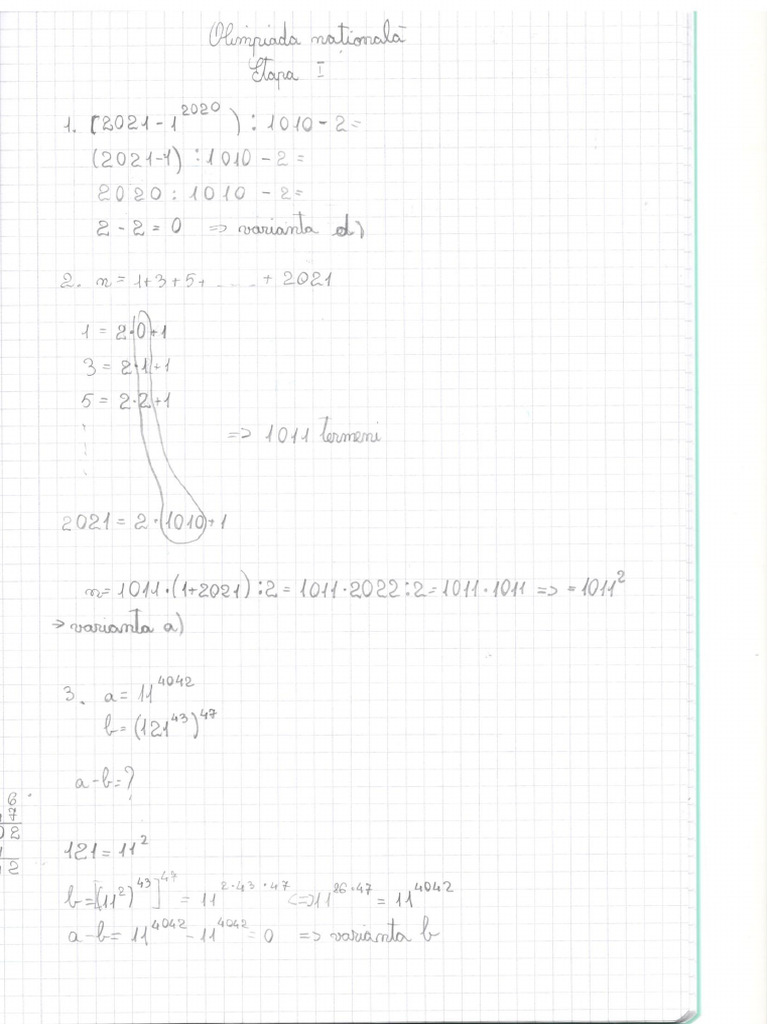 Olimpiada națională
Etapa I
1. (2021-1^2020) : 1010 - 2 =
(2021-1) : 1010 - 2 =
2020 : 1010 - 2 =
2 - 2 = 0 => varianta d)
2. n = 1+3+5+ ..... + 2021
1 = 2·0+1
3 = 2·1+1
5 = 2·2+1
=> 1011 termeni
2021 = 2·1010+1
n = 1011·(1+2021):2 = 1011·2022:2 = 1011·1011 => = 1011^2
→ varianta a)
3. a = 11^4042
b = (121^43)^47
a-b = ?
6
7
2
2
121 = 11^2
b = [(11^2)^43]^47 = 11^2·43·47 <=> 11^26·47 = 11^4042
a-b = 11^4042 - 11^4042 = 0 => varianta b